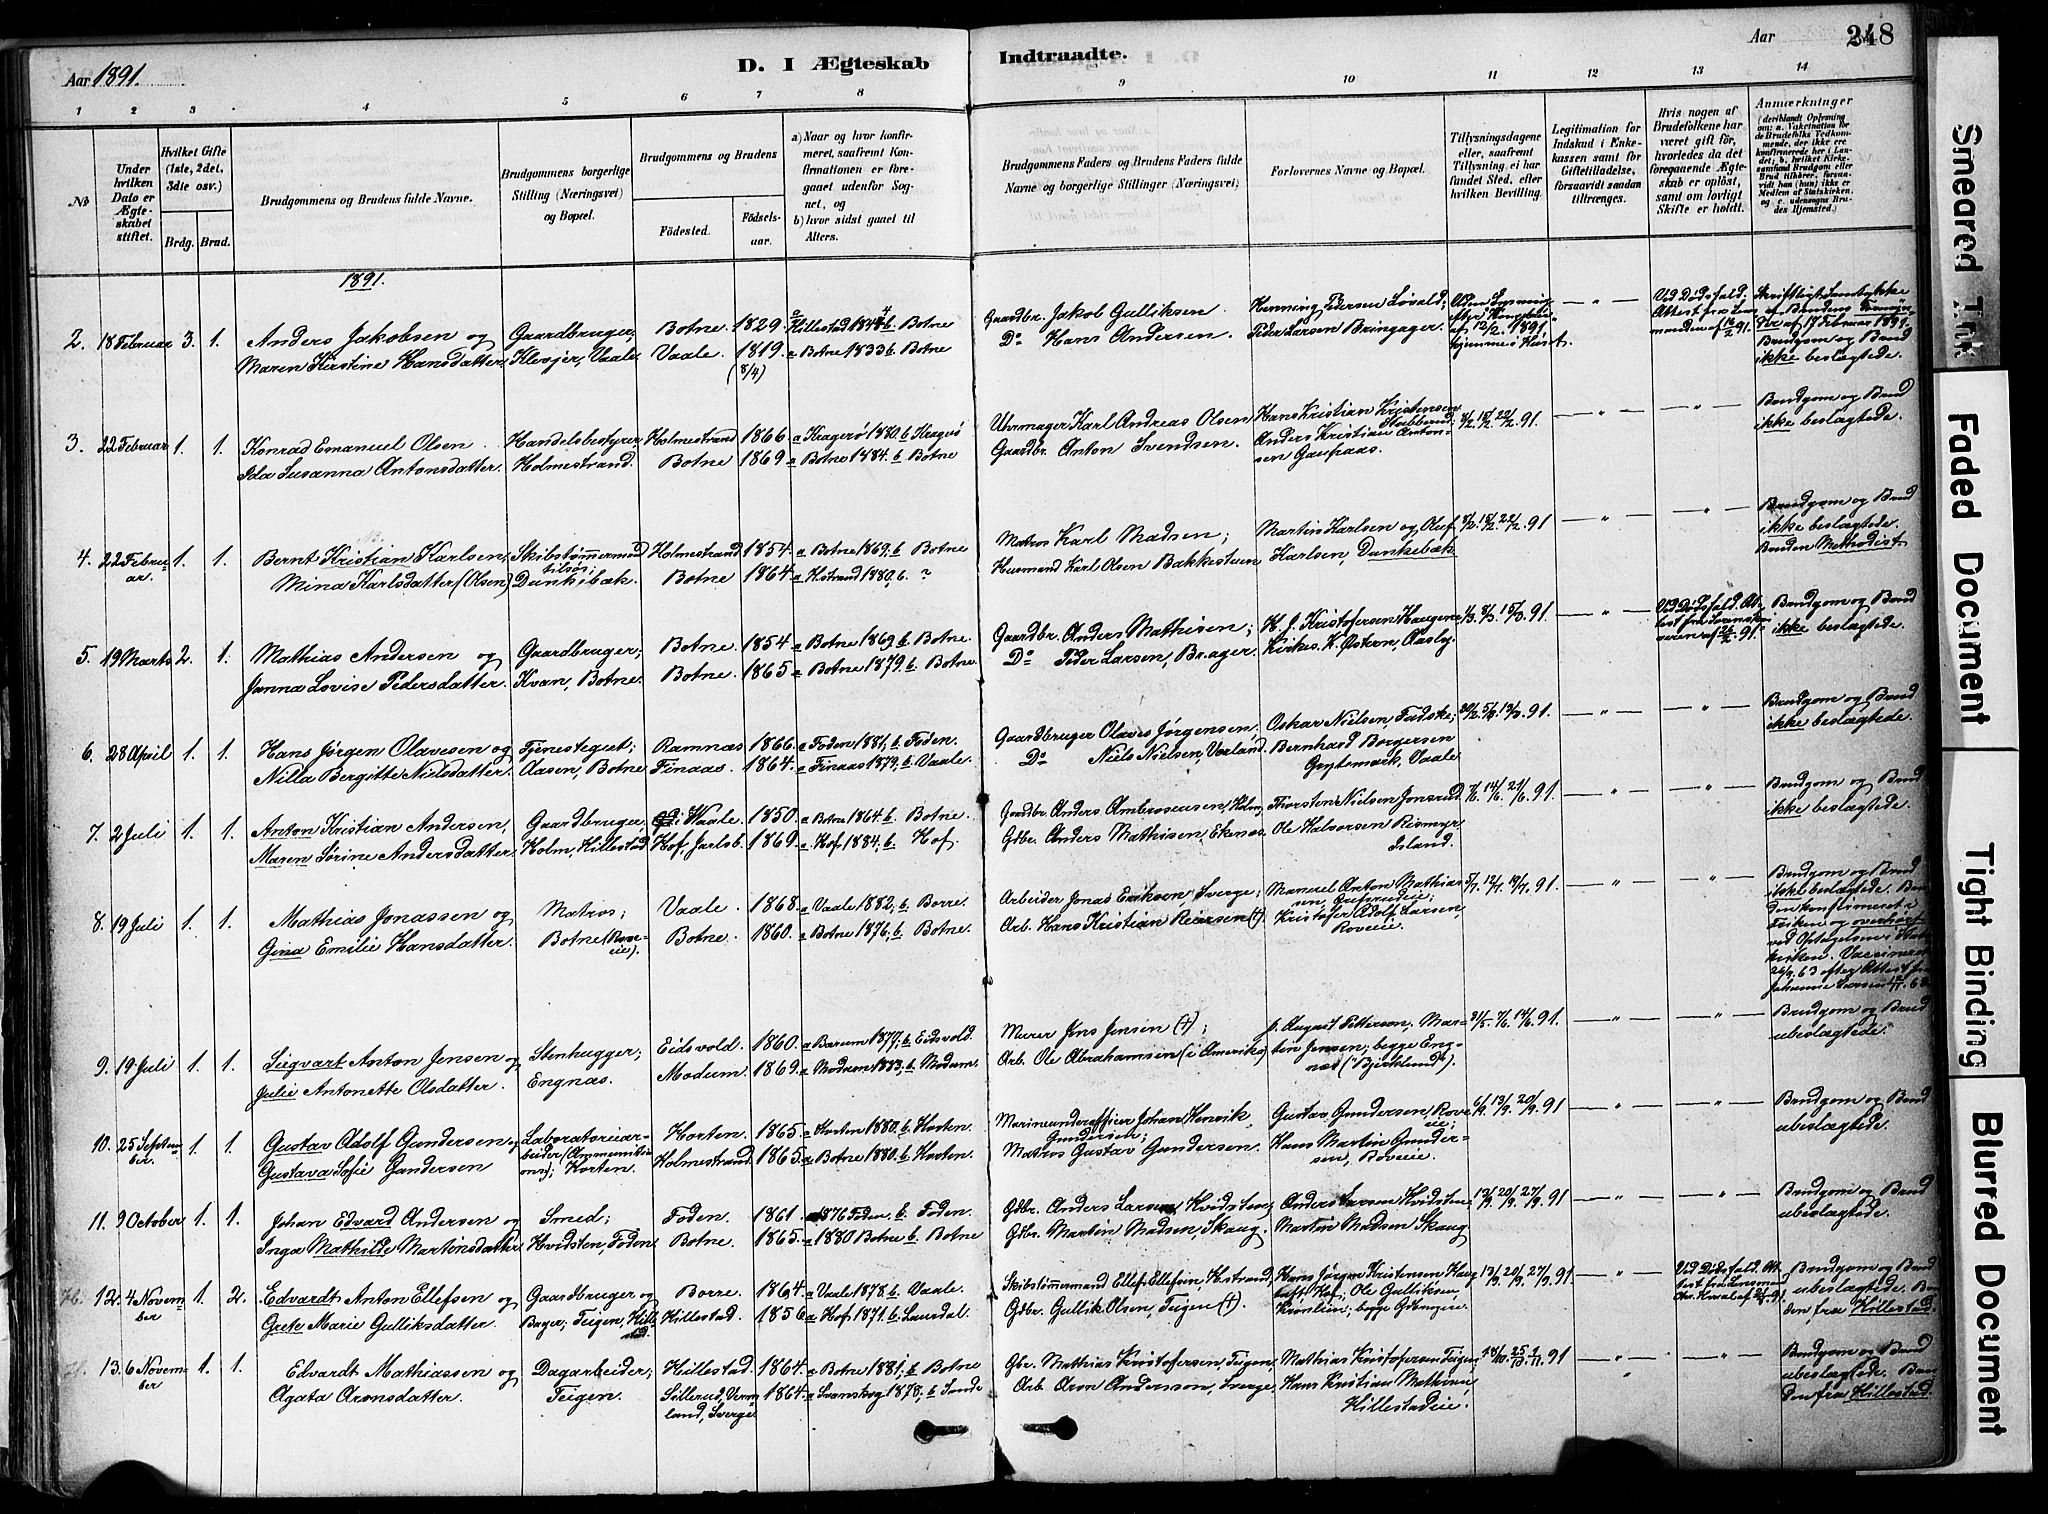 Aar 1891.
D. I Ægteskab Indtraadte.
Aar
248
1 2 3 4 5 6 7 8 9 10 11 12 13 14
No
Under hvilken Dato er Ægteskabet stiftet.
Hvilket Gifte (1ste, 2det, 3die osv.)
Brdg. Brud.
Brudgommens og Brudens fulde Navne.
Brudgommens borgerlige Stilling (Næringsvei) og Bopæl.
Brudgommens og Brudens
Födested. Födselsaar.
a) Naar og hvor konfirmeret, saafremt Konfirmationen er foregaaet udenfor Sognet, og
b) hvor sidst gaaet til Alters.
Brudgommens Faders og Brudens Faders fulde Navne og borgerlige Stillinger (Næringsvei)
Forlovernes Navne og Bopæl.
Tillysningsdagene eller, saafremt Tillysning ei har fundet Sted, efter hvilken Bevilling.
Legitimation for Indskud i Enkekassen samt for Giftetilladelse, forsaavidt saadan tiltrænges.
Hvis nogen af Brudefolkene har været gift för, hvorledes da det foregaaende Ægteskab er oplöst, samt om lovligt Skifte er holdt.
Anmærkninger
1891.
2. 18 Februar 3. 1. Anders Jakobsen og Gaardbruger, Botne. 1829. a Hillestad 1844 b. Botne Gaardbr. Jakob Gulliksen Henning Pedersen Løvald;
Maren Kirstine Hansdatter. Klevjer, Vaale Vaale. 1819. a Botne 1833 b Botne Do Hans Andersen. Peder Larsen Bringager. 12/2. 1891,
(8/4) Brudgom og Brud ikke beslægtede.
3. 22 Februar 1. 1. Konrad Emanuel Olsen. Handelsbestyrer, Holmestrand 1866 a Kragerø 1880. b Kragerø Uhrmager Karl Andreas Olsen Hans Kristian Kristensen 8/2. 15/2. 22/2. 91. — " — — " — Brudgom og Brud
Ida Susanna Antonsdatter. Holmestrand. Botne 1869 a Botne 1884. b Botne Gaardbr. Anton Svendsen. Anders Kristian Antonsen Gaupaas. ikke beslægtede.
4. 22 Februar. 1. 1. Bernt Kristian Karlsen, Skibstømmermand Holmestrand 1854. a Botne 1869. b Botne Matros Karl Madsen; Martin Karlsen og Oluf 8/2. 15/2. 22/2. 91 — " — — " — Brudgom og Brud ikke beslægtede.
Mina Karlsdatter (Olsen) Dunkebæk. Botne 1864. a H.strand 1880, b. ? Husmand Karl Olsen Bakkestuen Karlsen, Dunkebæk Bruden Methodist
5. 19 Marts 2. 1. Mathias Andersen og Gaardbruger; Botne. 1854. a Botne 1869. b. Botne. Gaardbr. Anders Mathisen; H. J. Kristofersen Haugen 1/3. 8/3. 15/3. 91 — " — Brudgom og Brud
Janna Lovise Pedersdatter. Kvan, Botne. Botne. 1865 a Botne 1879. b. Botne. Do Peder Larsen, Brager. Kirkes. K. Østern, Aasly. ikke beslægtede.
6. 28 April 1. 1. Hans Jørgen Olavesen og Tjenestegut; Ramnæs 1866. a Foden 1881; b. Foden. Gaardbruger Olaves Jørgensen, Oskar Nielsen Fadske; 91. — " — — " — Brudgom og Brud
Nilla Bergitte Nielsdatter. Aasen, Botne Finaas. 1864. a Finaas 1879; b. Vaale. Do Niels Nielsen, Varland. Bernhard Borgersen Grytemark, Vaale ikke beslægtede.
7. 2 Juli 1. 1. Anton Kristian Andersen, Gaardbruger, Vaale 1850. a Botne 1864. b. Botne. Gaardbr. Anders Ambrosensen, Holm; Thorsten Nielsen Jonsrud, 7/6. 14/6. 21/6. 91. — " — — " — Brudgom og Brud
Maren Sørine Andersdatter. Holm, Hillestad Hof, Jarlsb. 1869. a Hof 1884, b. Hof. Gdbr. Anders Mathisen, Ekenæs. Ole Halvorsen Rismyr, Island. ikke beslægtede.
8. 19 Juli 1. 1. Mathias Jonassen og Matros; Vaale. 1868. a Vaale 1882, b. Borre. Arbeider Jonas Eriksen, Sverge; Manuel Anton Mathiassen, 5/7. 12/7. 19/7. 91. — " — — " — Brudgom og Brud
Gina Emilie Hansdatter. Botne (Roveeie). Botne. 1860. a Botne 1876, b. Botne. Arb. Hans Kristian Reiersen (†). Kristofer Adolf Larsen, Roveeie. ikke beslægtede. Bruden konfirmeret i Kirken og overhørt ved Optagelsen i Statskirken.
9. 19 Juli 1. 1. Sigvart Anton Jensen og Stenhugger; Eidsvold. 1860. a Bærum 1877; b Eidsvold. Murer Jens Jensen (†); p. August Petterson, Marten Jensen; begge Engnæs ("Bjørklund"). 31/5. 7/6. 14/6. 91. — " — — " — Brudgom og Brud
Julie Antonette Olsdatter. Engnæs. Modum. 1869. a Modum 1883, b. Modum. Arb. Ole Abrahamsen (i Amerika) ubeslægtede.
10. 25 September. 1. 1. Gustav Adolf Gundersen og Laboratoriearbeider (Ammunitions); Horten. Horten. 1865. a Horten 1880. b Horten. Marineunderofficier Johan Henrik Gundersen; Gustav Gundersen, Roveeie; 6/9. 13/9. 20/9. 91 — " — — " — Brudgom og Brud
Gustava Sofie Gundersen Holmestrand. 1865. a Botne 1880. b Horten. Matros Gustav Gundersen. Hans Martin Gundersen, Roveeie. ubeslægtede.
11. 9 October 1. 1. Johan Edvard Andersen og Smed; Foden. 1861. 1876 Foden. b. Foden. Gdbr. Anders Larsen, Hvidsten; Anders Larsen Hvidsten 13/9. 20/9. 27/9. 91 — " — — " — Brudgom og Brud
Inga Mathilde Martinsdatter Hvidsten, Foden Botne. 1865. a 1880 Botne b. Botne Gdbr. Martin Madsen, Skaug. Martin Madsen Skaug ubeslægtede.
12. 4 November 1. 2. Edvardt Anton Ellefsen og Gaardbruger og Borre. 1864. a Vaale 1878. b. Vaale. Skibstømmermand Ellef Ellefsen, H.strand, Hans Jørgen Kristensen Haug 13/9. 20/9. 27/9. 91. — " — Ved Dødsfald. Brudgom og Brud
Grete Marie Gulliksdatter. Bager; Teigen, Hillestad. Hillestad. 1856 a Hof 1871. b. Laurdal. Gdbr. Gullik Olsen, Teigen (†). Hof, Ole Gulliksen, ubeslægtede. Bruden fra Hillestad.
13. 6 November 1. 1. Edvardt Mathiassen og Dagarbeider; Hillestad. 1864. a Botne 1881; b Botne Gbr. Mathias Kristofersen, Teigen, Mathias Kristofersen Teigen, 18/10. 25/10. 1/11. 91 Brudgom og Brud
Agata Aronsdatter. Teigen. Sillerud, Vermland, Sverge 1864. a Svanskog 1878, b. Sande Arb. Aron Anderson, Sverge, Hans Kristian Mathisen, Hillestadeie. ubeslægtede. Bruden fra Hillestad.
Smeared Ink
Faded Document
Tight Binding
Blurred Document